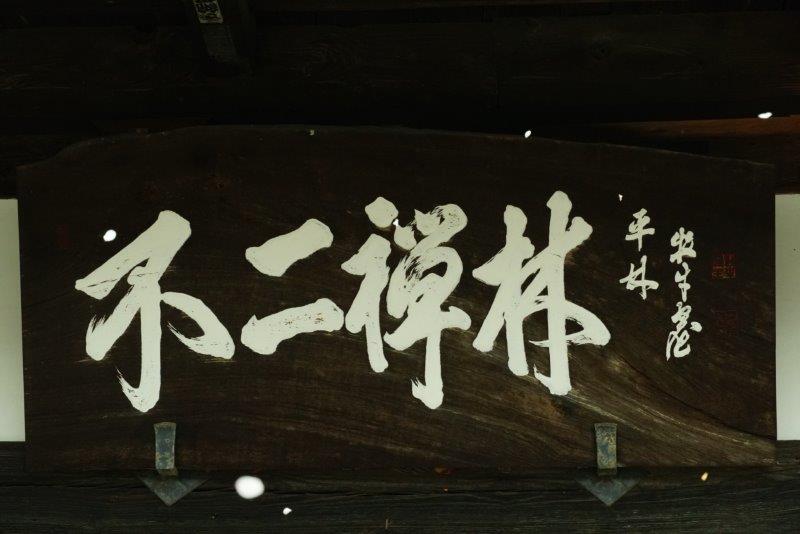 不二禅林
平林
牧牛窟